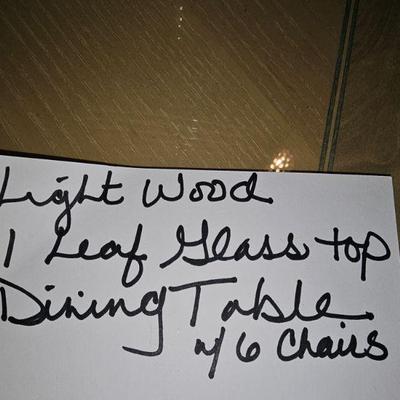 Light Wood
1 Leaf Glass top
Dining Table
w/6 Chairs